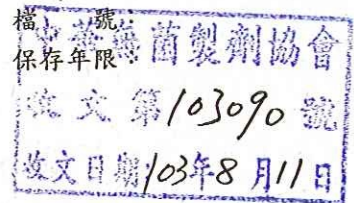 檔　　號：
保存年限：
中華 菌製劑協會
收文第103090號
收文日期103年8月11日